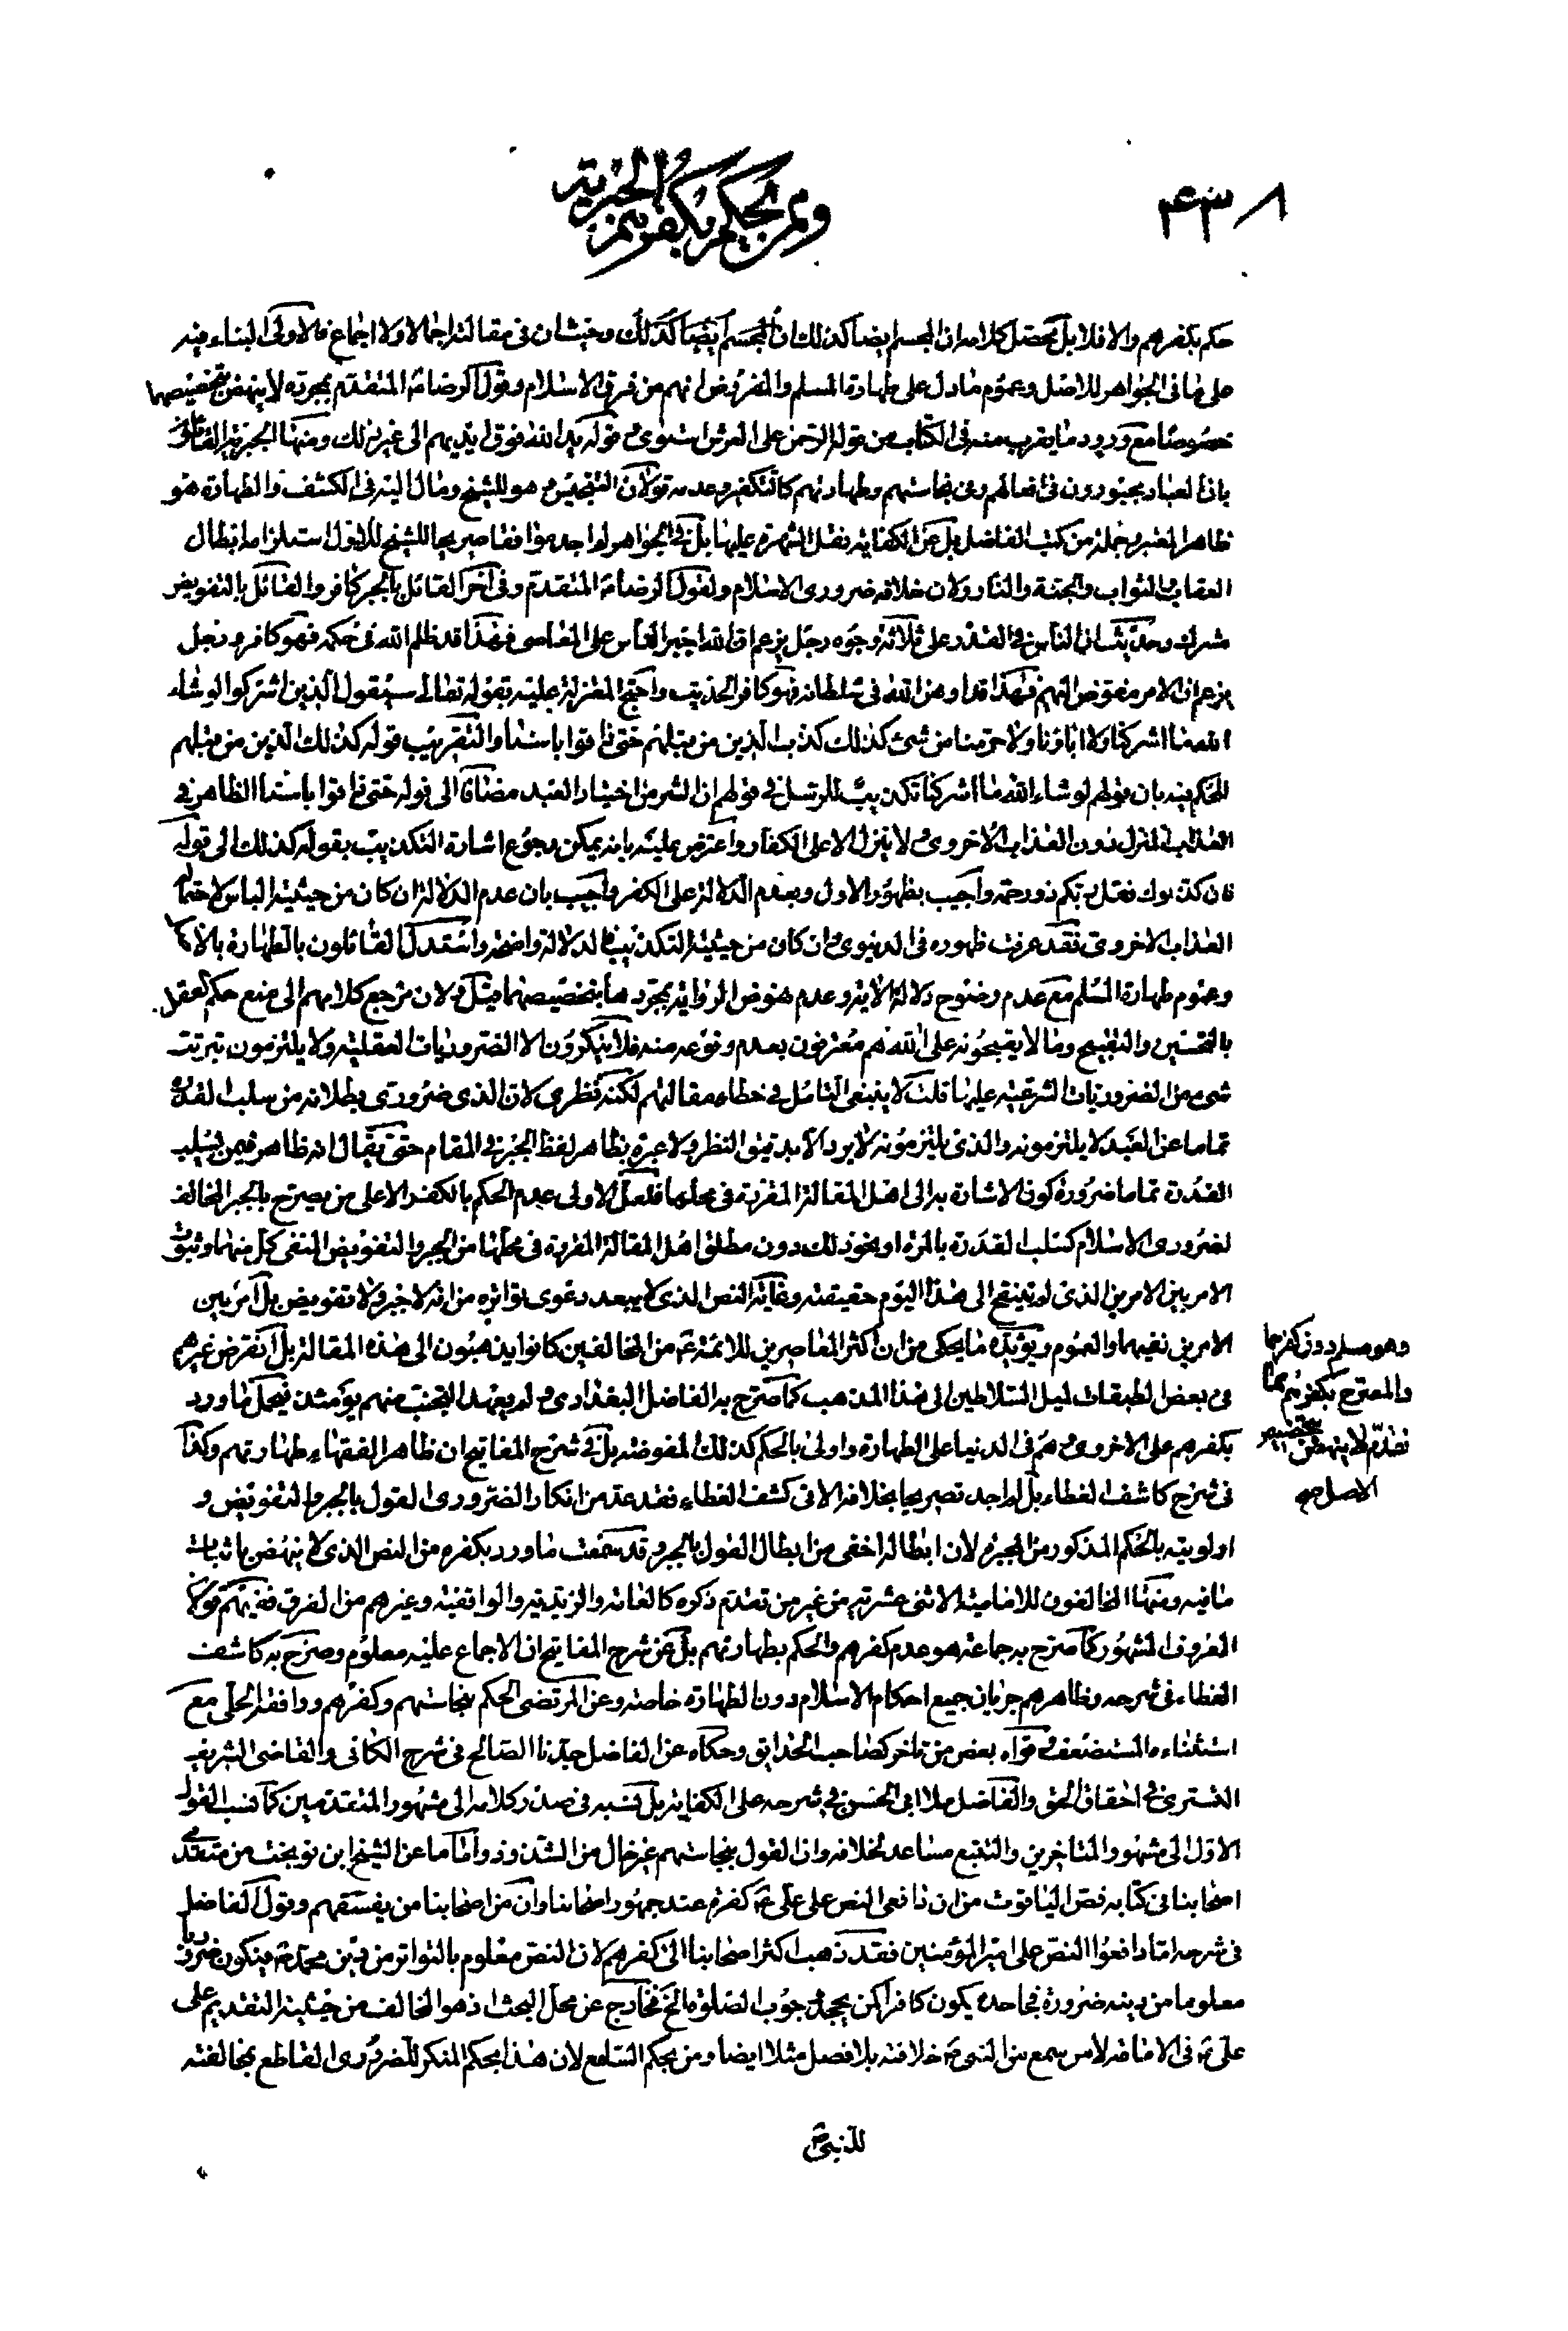 ٤٣٨
وممن يحكم بكفرهم الجبرية
حكم بكفرهم والا فلا بل محصل كلامه ان المجسم ايضا كذلك ان المجسم ايضا كذلك وحيث ان في مقالته اجمالا ولا اجماع فالاولى البناء فيه
على ما في الجواهر للاصل وعموم ما دل على طهارة المسلم والمفروض انهم من فرق الاسلام وقول الرضا المتقدم بمجرده لا ينهض بتخصيصهما
خصوصا مع ورود ما يقرب منه في الكتاب من قوله الرحمن على العرش استوى وقوله يد الله فوق ايديهم الى غير ذلك ومنها الجبرية القائلون
بان العباد مجبورون في افعالهم وفي نجاستهم وطهارتهم كالتكفير وعدمه قولان التنجيس وهو للشيخ ومال اليه في الكشف والطهارة هو
ظاهر المعتبر وجملة من كتب الفاضل بل عن الكفاية نقل الشهرة عليها بل في الجواهر لم اجد موافقا صريحا للشيخ للاول استلزامه ابطال
العقاب والثواب والجنة والنار ولان خلافه ضروري الاسلام ولقول الرضا المتقدم وفي آخر القائل بالجبر كافر والقائل بالتفويض
مشرك وحديث ان الناس في القدر على ثلاثة وجوه رجل يزعم ان الله اجبر الناس على المعاصي فهذا قد ظلم الله في حكمه فهو كافر ورجل
يزعم ان الامر مفوض اليهم فهذا قد اوهن الله في سلطانه فهو كافر الحديث واحتج المعتزلة عليه بقوله تعالى سيقول الذين اشركوا لو شاء
الله ما اشركنا ولا اباؤنا ولا حرمنا من شئ كذلك كذب الذين من قبلهم حتى ذاقوا باسنا والتقريب قوله كذلك الذين من قبلهم
للحكم فيه بان قولهم لو شاء الله ما اشركنا تكذيب للرسل في قولهم ان الشر من اختيار العبد مضافا الى قوله حتى ذاقوا باسنا الظاهر في
العذاب المنزل دون العذاب الاخروي ولا ينزل الا على الكفار واعترض عليه بانه يمكن رجوع اشارة التكذيب بقوله كذلك الى قوله
فان كذبوك فقل ربكم ذو رحمة واجيب بظهور الاول وبعدم الدلالة على الكفر واجيب بان عدم الدلالة ان كان من حيثية الباس لاحتمال
العذاب الاخروي فقد عرفت ظهوره في الدنيوي وان كان من حيثية التكذيب فالدلالة واضحة واستدل القائلون بالطهارة بالاصل
وعموم طهارة المسلم مع عدم وضوح دلالة الاية وعدم نهوض الرواية بمجردها بتخصيصهما ولان مرجع كلامهم الى منع حكم العقل
بالتحسين والتقبيح وما لا يقبحونه على الله هم معترفون بعدم وقوعه منه فلا ينكرون الا الضروريات العقلية ولا يلتزمون بترتب
شئ من الضروريات الشرعية عليها قلت لا ينبغي التامل في خطاء مقالتهم لكنه نظري لان الذي ضروري بطلانه من سلب القدرة
تماما عن العبد لا يلتزمونه والذي يلتزمونه لا يرد الا بدقيق النظر ولا عبرة بظاهر لفظ الجبر في المقام حتى يقال انه ظاهر فيمن يسلب
القدرة تماما ضرورة كون الاشارة به الى اهل المقالة المقررة في محلها فلعل الاولى عدم الحكم بالكفر الا على من يصرح بالجبر المخالف
لضروري الاسلام كسلب القدرة بالمرة او نحو ذلك دون مطلق اهل المقالة المقررة في محلها من الجبر والتفويض المنفي كل منهما وثبوت
الامر بين الامرين الذي لم ينقح الى هذا اليوم حقيقته وغايته النص الذي لا يبعد دعوى تواتره من انه لا جبر ولا تفويض بل امر بين
الامرين نفيهما والعموم ويؤيده ما يحكى من ان اكثر المعاصرين للائمة من المخالفين كانوا يذهبون الى هذه المقالة بل انقرض غيرهم
في بعض الطبقات لميل السلاطين الى هذا المذهب كما صرح به الفاضل البغدادي ولم يعهد التجنب منهم يومئذ فيحمل ما ورد
بكفرهم على الاخروي وهم في الدنيا على الطهارة واولى بالحكم كذلك المفوضة بل في شرح المفاتيح ان ظاهر الفقهاء طهارتهم وكذا
في شرح كاشف الغطاء بل لم اجد تصريحا بخلافه الا في كشف الغطاء فقد عد من انكار الضروري القول بالجبر والتفويض و
اولويته بالحكم المذكور من المجبرة لان ابطاله اخفى من ابطال القول بالجبر وقد سمعت ما ورد بكفره من النص الذي لا ينهض باثبات
ما فيه ومنها المخالفون للامامية الاثنى عشرية من غير من تقدم ذكره كالعامة والزيدية والواقفية وغيرهم من الفرق ففيهم قولان
المعروف المشهور كما صرح به جماعة هو عدم كفرهم والحكم بطهارتهم بل عن شرح المفاتيح ان الاجماع عليه معلوم وصرح به كاشف
الغطاء في شرحه وظاهرهم جريان جميع احكام الاسلام دون الطهارة خاصة وعن المرتضى الحكم بنجاستهم وكفرهم ووافقه الحلي مع
استثناءه المستضعف وقواه بعض من تاخر كصاحب الحدائق وحكاه عن الفاضل جدنا الصالح في شرح الكافي والقاضي الشريف
التستري في احقاق الحق والفاضل ملا ابى الحسن في شرحه على الكفاية بل نسبه في صدر كلامه الى مشهور المتقدمين كما نسب القول
الاول الى مشهور المتاخرين والتتبع مساعد لخلافه وان القول بنجاستهم غير خال من الشذوذ واما ما عن الشيخ ابن نوبخت من متقدمي
اصحابنا في كتابه فص الياقوت من ان دافعى النص على علي كفرة عند جمهور اصحابنا وان من اصحابنا من يفسقهم وقول الفاضل
في شرحه اما دافعوا النص على امير المؤمنين فقد ذهب اكثر اصحابنا الى كفرهم لان النص معلوم بالتواتر من دين محمد فيكون ضروريا
معلوما من دينه ضرورة فجاحده يكون كافرا كمن يجحد وجوب الصلوة الخ فخارج عن محل البحث اذ هو المخالف من حيثية التقديم على
علي في الامامة لا من سمع من النبي خلافته بلا فصل مثلا ايضا ومن بحكم السامع لان هذا بحكم المنكر للضروري القاطع بمخالفته
للنبي
وهو مسلم دون كفرهما
والمصرح بكفرهم مما
تقدم لا ينهض بتخصيص
الاصل صح